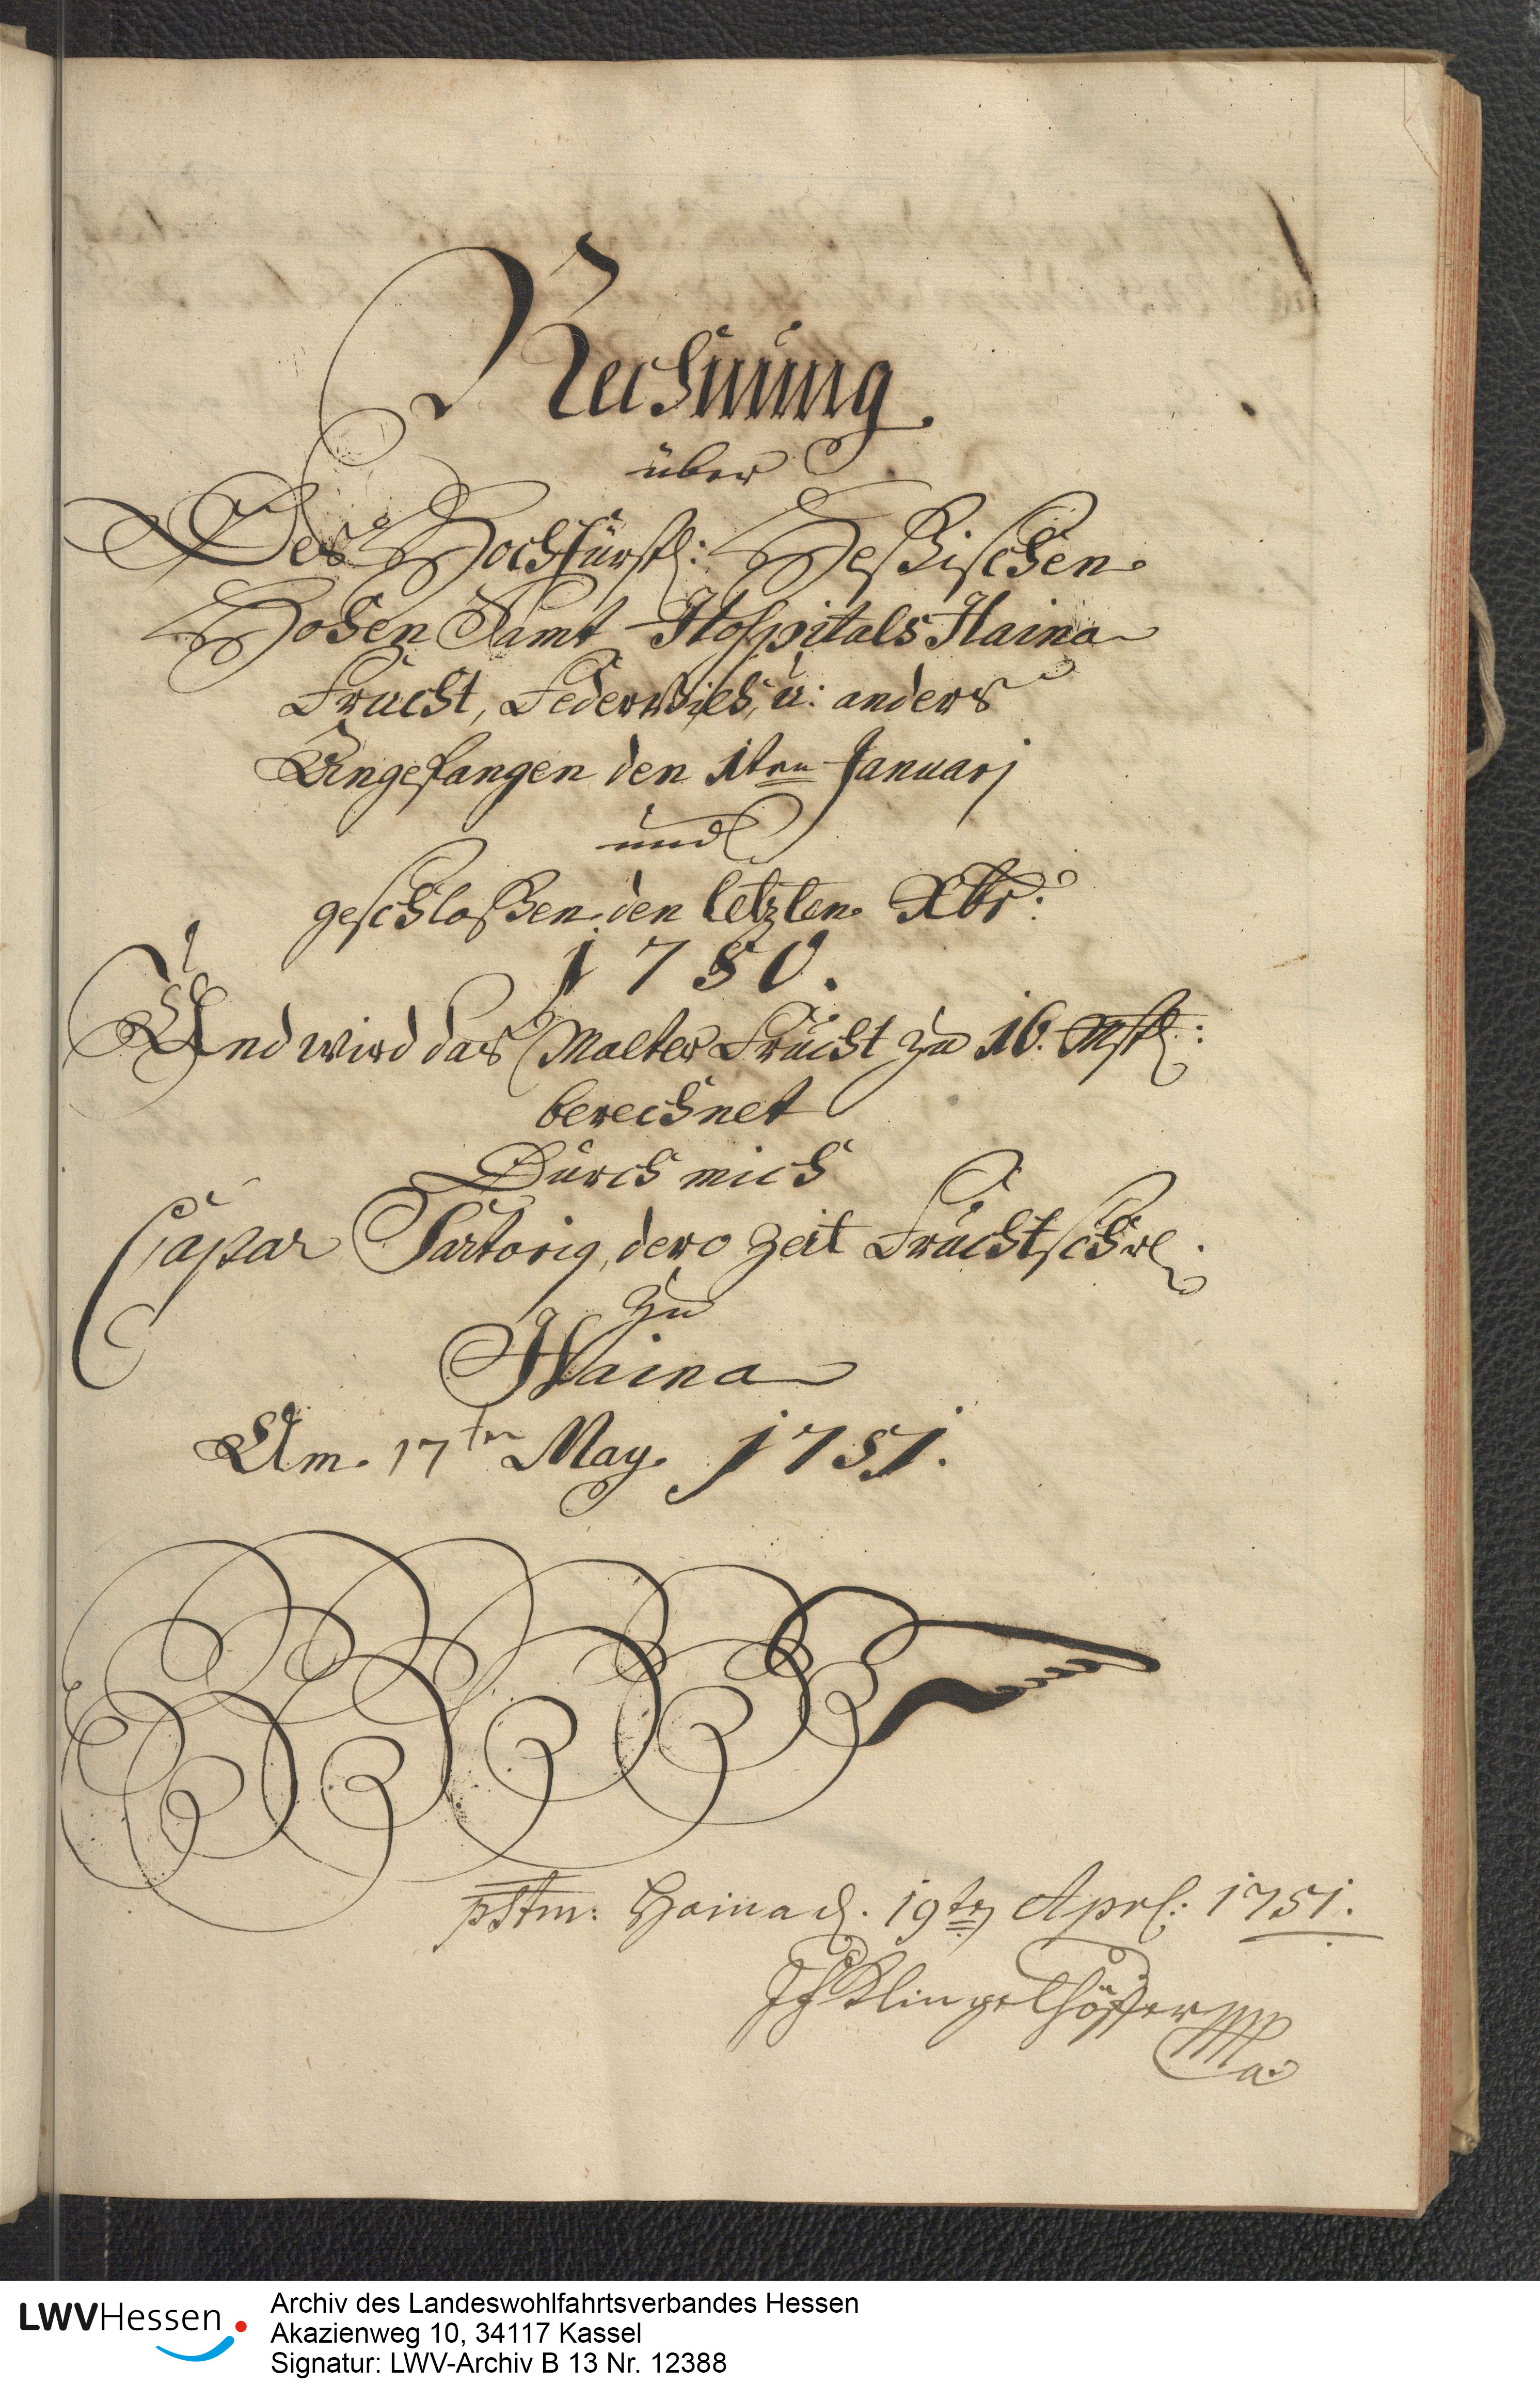 Rechnung
über
Des Hochfürstl: Heßischen
Hohen Samt Hospitals Haina
Frucht, Federvieh, u: anders
Angefangen den 1ten Januarj
und
geschloßen den letzten Xbr:
1750.
Und wird das Malter Frucht zu 16. Mst:
berechnet
Durch mich
Caspar Sartorig, dero Zeit Fruchtschr.
zu
Haina
Am 17ten May 1751.
pstm: Haina d. 19ten Aprl: 1751.
Klingelhöffer
LWVHessen
Archiv des Landeswohlfahrtsverbandes Hessen
Akazienweg 10, 34117 Kassel
Signatur: LWV-Archiv B 13 Nr. 12388